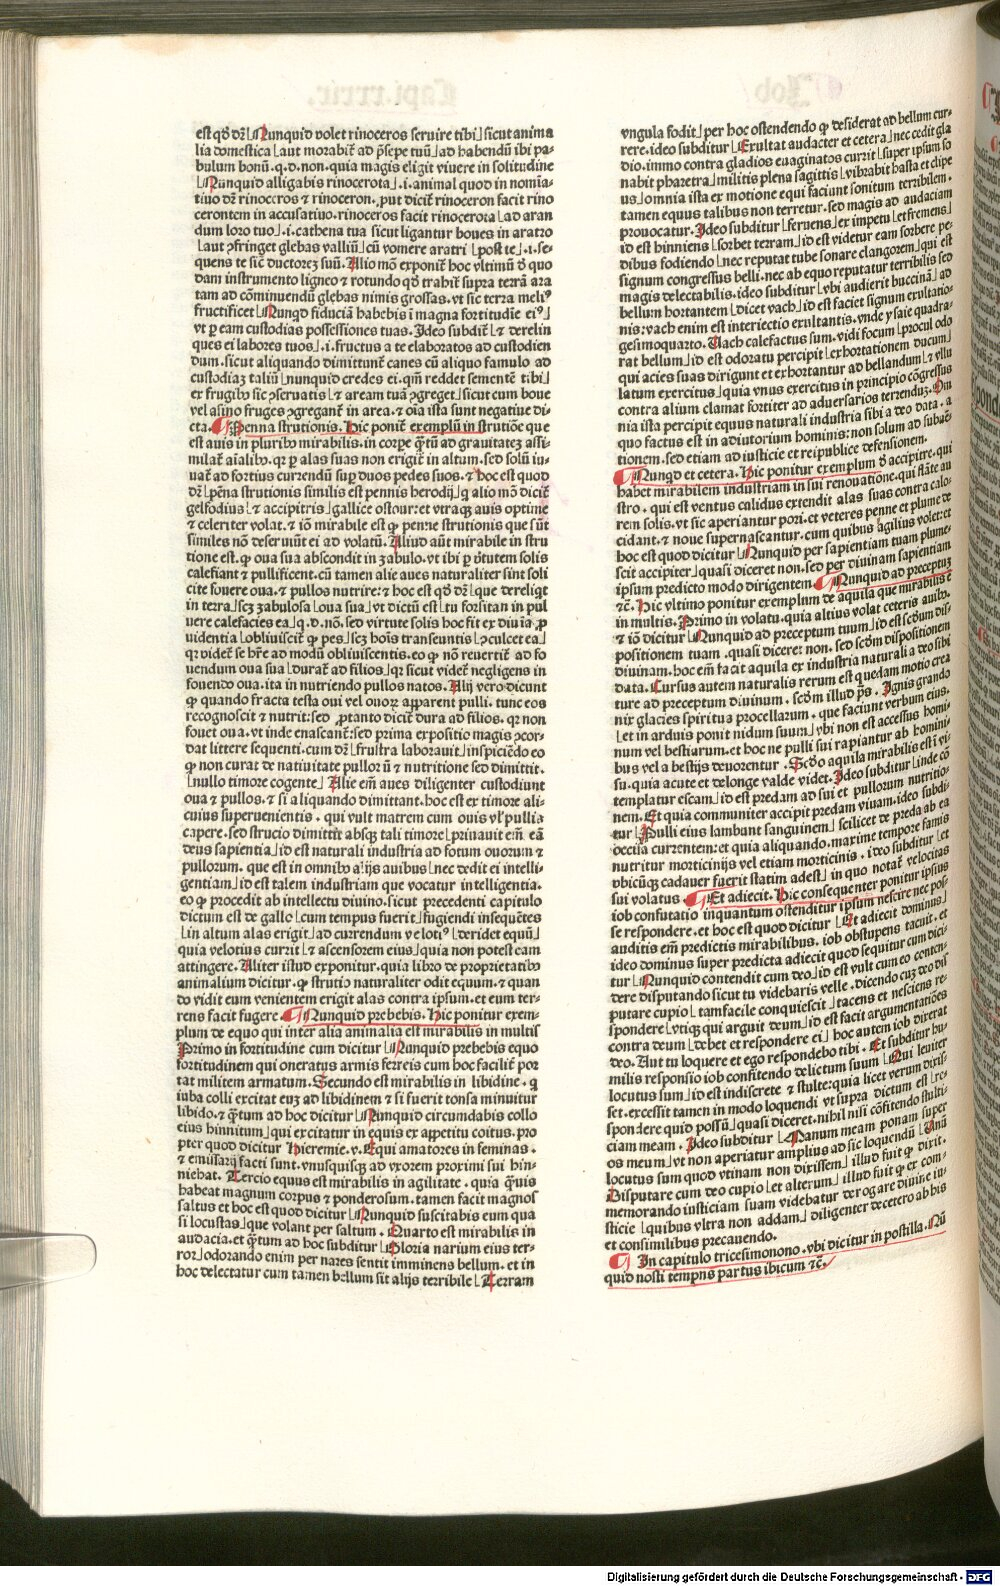 est qđ dr̄ ⌊Nunquid volet rinoceros seruire tibi⌋ sicut anima
lia domestica ⌊aut morabit᷑ ad p̄sepe tuū⌋ ad habendū ibi pa⸗
bulum bonū.q.d.non.quia magis eligit viuere in solitudine
⌊Nūnquid alligabis rinocerota⌋.i.animal quod in nomīa⸗
tiuo dr̄ rinoceros ⁊ rinoceron. ꝓut dicit᷑ rinoceron facit rino
cerontem in accusatiuo.rinoceros facit rinocerota ⌊ad aran
dum loro tuo⌋.i.cathena tua sicut ligantur boues in aratro
⌊aut ꝯfringet glebas valliū⌋ cū vomere aratri ⌊post te⌋.i.se⸗
quens te sic̄ ductorez suū. Alio mō exponit᷑ hoc vltimū đ quo
dam instrumento ligneo ⁊ rotundo qđ trahit᷑ supra terrā ara
tam ad cōminuendū glebas nimis grossas.vt sic terra meliꝰ
fructificet ⌊Nunqd fiduciā habebis ī magna fortitudīe eiꝰ⌋
vt ꝑ eam custodias possessiones tuas. Ideo subdit᷑ ⌊⁊ derelin
ques ei labores tuos⌋.i.fructus a te elaboratos ad custodien
dum.sicut aliquando dimittunt᷑ canes cū aliquo famulo ad
custodiaz taliū ⌊nunquid credes ei.qm̄ reddet sementē tibi⌋
ex frugibꝰ sic ꝯseruatis ⌊⁊ aream tuā ꝯgreget⌋ sicut cum boue
vel asino fruges ꝯgregant᷑ in area.⁊ oīa ista sunt negatiue di⸗
cta. ¶ ⌊Penna strutionis. Hic ponit᷑ exemplū in strutiōe que
est auis in pluribꝰ mirabilis.in corpe q̄tū ad grauitatez assi⸗
milat᷑ aīalibꝰ.qꝛ ꝑ alas suas non erigit᷑ in altum.sed solū iu⸗
uat᷑ ad fortius currendū suꝑ duos pedes suos.⁊ hoc est quod
dr̄ ⌊pēna strutionis similis est pennis herodij⌋ q alio mō dicit᷑
gelfodius ⌊⁊ accipitris⌋ gallice ostour:et vtraqꝫ auis optime
⁊ celeriter volat.⁊ iō mirabile est ꝙ penne strutionis que sūt
similes nō deseruiūt ei ad volatū. Aliud aūt mirabile in stru
tione est.ꝙ oua sua abscondit in zabulo.vt ibi ꝑ v̄tutem solis
calefiant ⁊ pullificent.cū tamen alie aues naturaliter sint soli
cite fouere oua.⁊ pullos nutrire:⁊ hoc est qđ dr̄ ⌊que dereliqt
in terra⌋ scꝫ zabulosa ⌊oua sua⌋ vt dictū est ⌊tu forsitan in pul
uere calefacies ea⌋ q.d.nō.sed virtute solis hoc fit ex diuīa ꝓ
uidentia ⌊obliuiscit᷑ ꝙ pes⌋ scꝫ hoīs transeuntis ⌊ꝯculcet ea⌋
qꝛ videt᷑ se hr̄e ad modū obliuiscentis.eo ꝙ nō reuertit᷑ ad fo
uendum oua sua ⌊durat᷑ ad filios⌋ qꝛ sicut videt᷑ negligens in
fouendo oua.ita in nutriendo pullos natos. Alij vero dicunt
ꝙ quando fracta testa oui vel ouoꝝ apparent pulli.tunc eos
recognoscit ⁊ nutrit:sed ꝓtanto dicit᷑ dura ad filios.qꝛ non
fouet oua.vt inde enascant᷑:sed prima expositio magis ꝯcor⸗
dat littere sequenti.cum dr̄ ⌊frustra laborauit⌋ inspiciēdo eo
ꝙ non curat de natiuitate pulloꝝ ⁊ nutritione sed dimittit.
⌊nullo timore cogente⌋ Alie em̄ aues diligenter custodiunt
oua ⁊ pullos.⁊ si aliquando dimittant.hoc est ex timore ali⸗
cuius superuenientis. qui vult matrem cum ouis vl̓ pullis
capere.sed strucio dimittit absqꝫ tali timore ⌊priuauit em̄ eā
deus sapientia⌋ id est naturali industria ad fotum ouorum ⁊
pullorum. que est in omnibꝰ alijs auibus ⌊nec dedit ei intelli⸗
gentiam⌋ id est talem industriam que vocatur intelligentia.
eo ꝙ procedit ab intellectu diuino.sicut precedenti capitulo
dictum est de gallo ⌊cum tempus fuerit⌋ fugiendi insequētes
⌊in altum alas erigit⌋ ad currendum velotiꝰ ⌊deridet equū⌋
quia velotius currit ⌊⁊ ascensorem eius⌋ quia non potest eam
attingere. Aliter istud exponitur.quia libro de proprietatibꝰ
animalium dicitur.ꝙ strutio naturaliter odit equum.⁊ quan
do vidit eum venientem erigit alas contra ipsum.et eum ter⸗
rens facit fugere. ¶ ⌊Nunquid prebebis. Hic ponitur exem⸗
plum de equo qui inter alia animalia est mirabilis in multis
Primo in fortitudine cum dicitur ⌊Nunquid prebebis equo
fortitudinem qui oneratus armis ferreis cum hoc facilit᷑ por
tat militem armatum. Secundo est mirabilis in libidine. q
iuba colli excitat euꝫ ad libidinem ⁊ si fuerit tonsa minuitur
libido.⁊ q̄tum ad hoc dicitur ⌊Nunquid circumdabis collo
eius hinnitum⌋ qui excitatur in equis ex appetitu coitus.pro
pter quod dicitur Hieremie.v. Equi amatores in feminas.
⁊ emissarij facti sunt.vnusquisqꝫ ad vxorem proximi sui hin⸗
niebat. Tercio equus est mirabilis in agilitate. quia q̄uis
habeat magnum corpus ⁊ ponderosum.tamen facit magnos
saltus et hoc est quod dicitur ⌊Nunquid suscitabis eum qua
si locustas⌋ que volant per saltum. Quarto est mirabilis in
audacia.et q̄tum ad hoc subditur ⌊Gloria narium eius ter⸗
ror⌋ odorando enim per nares sentit imminens bellum.et in
hoc delectatur cum tamen bellum sit alijs terribile ⌊Terram
vngula fodit⌋ per hoc ostendendo ꝙ desiderat ad bellum cur⸗
rere.ideo subditur ⌊Exultat audacter et cetera⌋ nec cedit gla
dio.immo contra gladios euaginatos currit ⌊super ipsum so
nabit pharetra⌋ militis plena sagittis ⌊vibrabit hasta et clipe
us⌋ omnia ista ex motione equi faciunt sonitum terribilem.
tamen equus talibus non terretur.sed magis ad audaciam
prouocatur. Ideo subditur ⌊feruens⌋ ex impetu ⌊et fremens⌋
id est hinniens ⌊sorbet terram⌋ id est videtur eam sorbere pe⸗
dibus fodiendo ⌊nec reputat tube sonare clangorem⌋ qui est
signum congressus belli.nec ab equo reputatur terribilis sed
magis delectabilis.ideo subditur ⌊vbi audierit buccinā⌋ ad
bellum hortantem ⌊dicet vach⌋ id est faciet signum exultatio⸗
nis:vach enim est interiectio exultantis.vnde ysaie quadra⸗
gesimoquarto. Vach calefactus sum.vidi focum ⌊procul odo
rat bellum⌋ id est odoratu percipit ⌊exhortationem ducum⌋
qui acies suas dirigunt et exhortantur ad bellandum ⌊⁊ vllu
latum exercitus⌋ quia vnus exercitus in principio cōgressus
contra alium clamat fortiter ad aduersarios terrenduꝫ. Om
nia ista percipit equus naturali industria sibi a deo data. a
quo factus est in adiutorium hominis:non solum ad subuē⸗
tionem.sed etiam ad iusticie et reipublice defensionem.
¶ ⌊Nunqd et cetera. Hic ponitur exemplum đ accipitre.qui
habet mirabilem industriam in sui renouatione.qui flāte au
stro. qui est ventus calidus extendit alas suas contra calo⸗
rem solis.vt sic aperiantur pori.et veteres penne et plume de
cidant.⁊ noue supernascantur.cum quibus agilius volet:et
hoc est quod dicitur ⌊Nunquid per sapientiam tuam plume⸗
scit accipiter⌋ quasi diceret non.sed per diuinam sapientiam
ipsum predicto modo dirigentem. ¶ ⌊Nunquid ad preceptuꝫ
⁊c̄. Hic vltimo ponitur exemplum de aquila que mirabilis ē
in multis. Primo in volatu.quia altius volat ceteris auibꝰ.
⁊ iō dicitur ⌊Nunquid ad preceptum tuum⌋ id est scđum dis⸗
positionem tuam.quasi diceret non.sed scđm dispositionem
diuinam.hoc em̄ facit aquila ex industria naturali a deo sibi
data. Cursus autem naturalis rerum est quedam motio crea
ture ad preceptum diuinum.scđm illud ps. Ignis grando
nix glacies spiritus procellarum. que faciunt verbum eius.
⌊et in arduis ponit nidum suum⌋ vbi non est accessus homi⸗
num vel bestiarum.et hoc ne pulli sui rapiantur ab homini⸗
bus vel a bestijs deuorentur. Scđo aquila mirabilis est ī vi⸗
su.quia acute et delonge valde videt. Ideo subditur ⌊inde cō
templatur escam⌋ id est predam ad sui et pullorum nutritio⸗
nem. Et quia communiter accipit predam viuam.ideo subdi⸗
tur ⌊Pulli eius lambunt sanguinem⌋ scilicet de preda ab ea
occisa currentem:et quia aliquando.maxime tempore famis
nutritur morticinijs vel etiam morticinis. ideo subditur ⌊et
vbicūqꝫ cadauer fuerit statim adest⌋ in quo notat᷑ velocitas
sui volatus. ¶ ⌊Et adiecit. Hic consequenter ponitur ipsius
iob confutatio inquantum ostenditur ipsum nescire nec pos⸗
se respondere.et hoc est quod dicitur ⌊Et adiecit dominus⌋
auditis em̄ predictis mirabilibus. iob obstupens tacuit. et
ideo dominus super predicta adiecit quod sequitur cum dici⸗
tur ⌊Nunquid contendit cum deo⌋ id est vult cum eo conten⸗
dere disputando sicut tu videbaris velle.dicendo cuꝫ deo dis
putare cupio ⌊tam facile conquiescit⌋ tacens et nesciens re⸗
spondere ⌊vtiqꝫ qui arguit deum⌋ id est facit argumentatiōes
contra deum ⌊debet et respondere ei⌋ hoc autem iob dixerat
deo. Aut tu loquere et ego respondebo tibi. Et subditur hu⸗
milis responsio iob confitendo delictum suum ⌊Qui leuiter
locutus sum⌋ id est indiscrete ⁊ stulte:quia licet verum dixis⸗
set.excessit tamen in modo loquendi vt supra dictum est ⌊re⸗
spondere quid possū⌋ quasi diceret.nihil nisi cōfitendo stulti⸗
ciam meam. Ideo subditur ⌊Manum meam ponam super
os meum⌋ vt non aperiatur amplius ad sic loquendū ⌊Unū
locutus sum quod vtinam non dixissem⌋ illud fuit ꝙ dixit.
Disputare cum deo cupio ⌊et alterum⌋ illud fuit ꝙ ex com⸗
memorando iusticiam suam videbatur derogare diuine iu⸗
sticie ⌊quibus vltra non addam⌋ diligenter decetero ab his
et consimilibus precauendo.
¶ In capitulo tricesimonono.vbi dicitur in postilla. Nū
quid nosti tempus partus ibicum ⁊c̄.
Digitalisierung gefördert durch die Deutsche Forschungsgemeinschaft - DFG